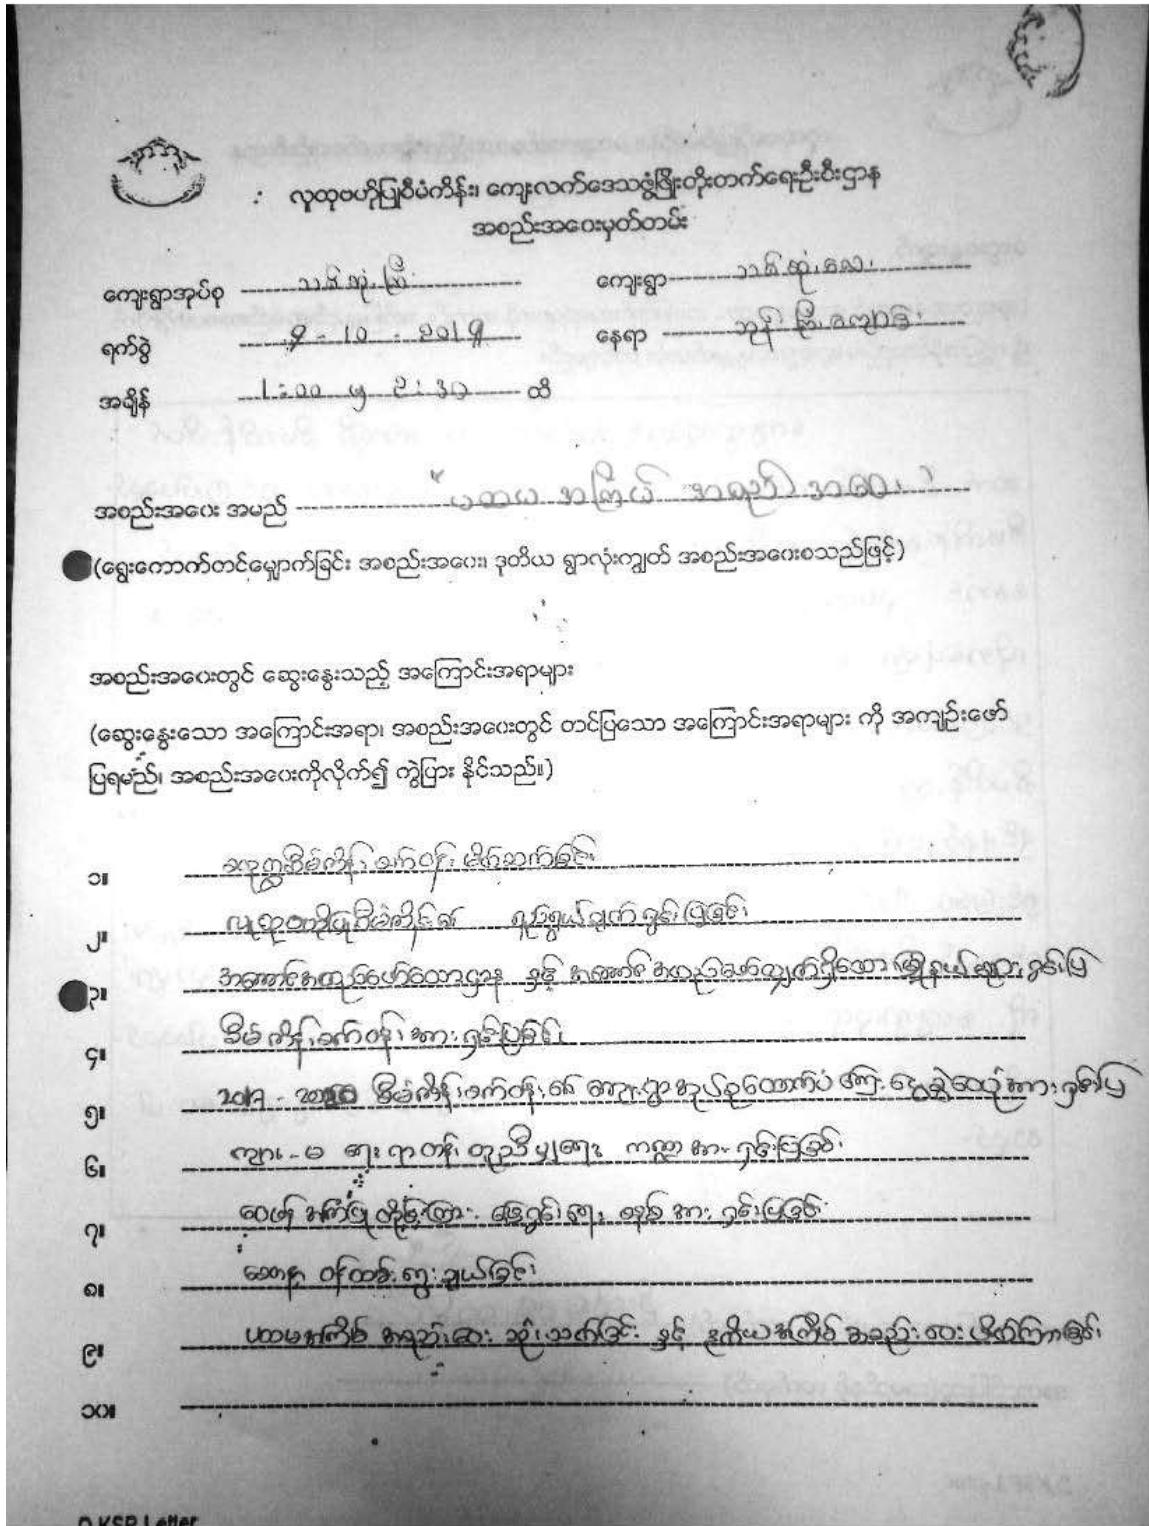 လူထုဗဟိုပြုစီမံကိန်း၊ ကျေးလက်ဒေသဖွံ့ဖြိုးတိုးတက်ရေးဦးစီးဌာန
အစည်းအဝေးမှတ်တမ်း
ကျေးရွာအုပ်စု သစ်ဆုံးကြီး ကျေးရွာ သစ်ဆုံးလေး
ရက်စွဲ 9 - 10 - 2019 နေရာ ဘုန်းကြီးကျောင်း
အချိန် 1:00 မှ 2:30 ထိ
အစည်းအဝေး အမည် "ပထမအကြိမ် အစည်းအဝေး"
(ရွေးကောက်တင်မြှောက်ခြင်း အစည်းအဝေး၊ ဒုတိယ ရွာလုံးကျွတ် အစည်းအဝေးစသည်ဖြင့်)
အစည်းအဝေးတွင် ဆွေးနွေးသည့် အကြောင်းအရာများ
(ဆွေးနွေးသော အကြောင်းအရာ၊ အစည်းအဝေးတွင် တင်ပြသော အကြောင်းအရာများ ကို အကျဉ်းဖော်
ပြရမည်၊ အစည်းအဝေးကိုလိုက်၍ ကွဲပြား နိုင်သည်။)
၁။ စီမံကိန်းဝက်ဝန်း မိတ်ဆက်ခြင်း
၂။ လူထုဗဟိုပြုစီမံကိန်း၏ ရည်ရွယ်ချက် ရှင်းပြခြင်း
၃။ အကောင်အထည်ဖော်သောဌာန နှင့် အကောင်အထည်ဖော်လျှက်ရှိသော မြို့နယ်များ ရှင်းပြ
၄။ စီမံကိန်းစက်ဝန်းအား ရှင်းပြခြင်း
၅။ စီမံကိန်းစက်ဝန်း၏ ကျေးရွာအုပ်စုထောက်ပံ့ကြေး ငွေခွဲဝေပုံအား ရှင်းပြ
၆။ ကျား - မ ရေးရာတန်းတူညီမျှရေး ကဏ္ဍအား ရှင်းပြခြင်း
၇။ ဝေဖန်အကြံပြုတိုင်ကြား ဖြေရှင်းရေး စနစ်အား ရှင်းပြခြင်း
၈။ စေတနာ့ဝန်ထမ်းရွေးချယ်ခြင်း
၉။ ပထမအကြိမ် အစည်းအဝေး သုံးသပ်ခြင်း နှင့် ဒုတိယအကြိမ် အစည်းအဝေး ဖိတ်ကြားခြင်း
၁၀။
KSP Letter